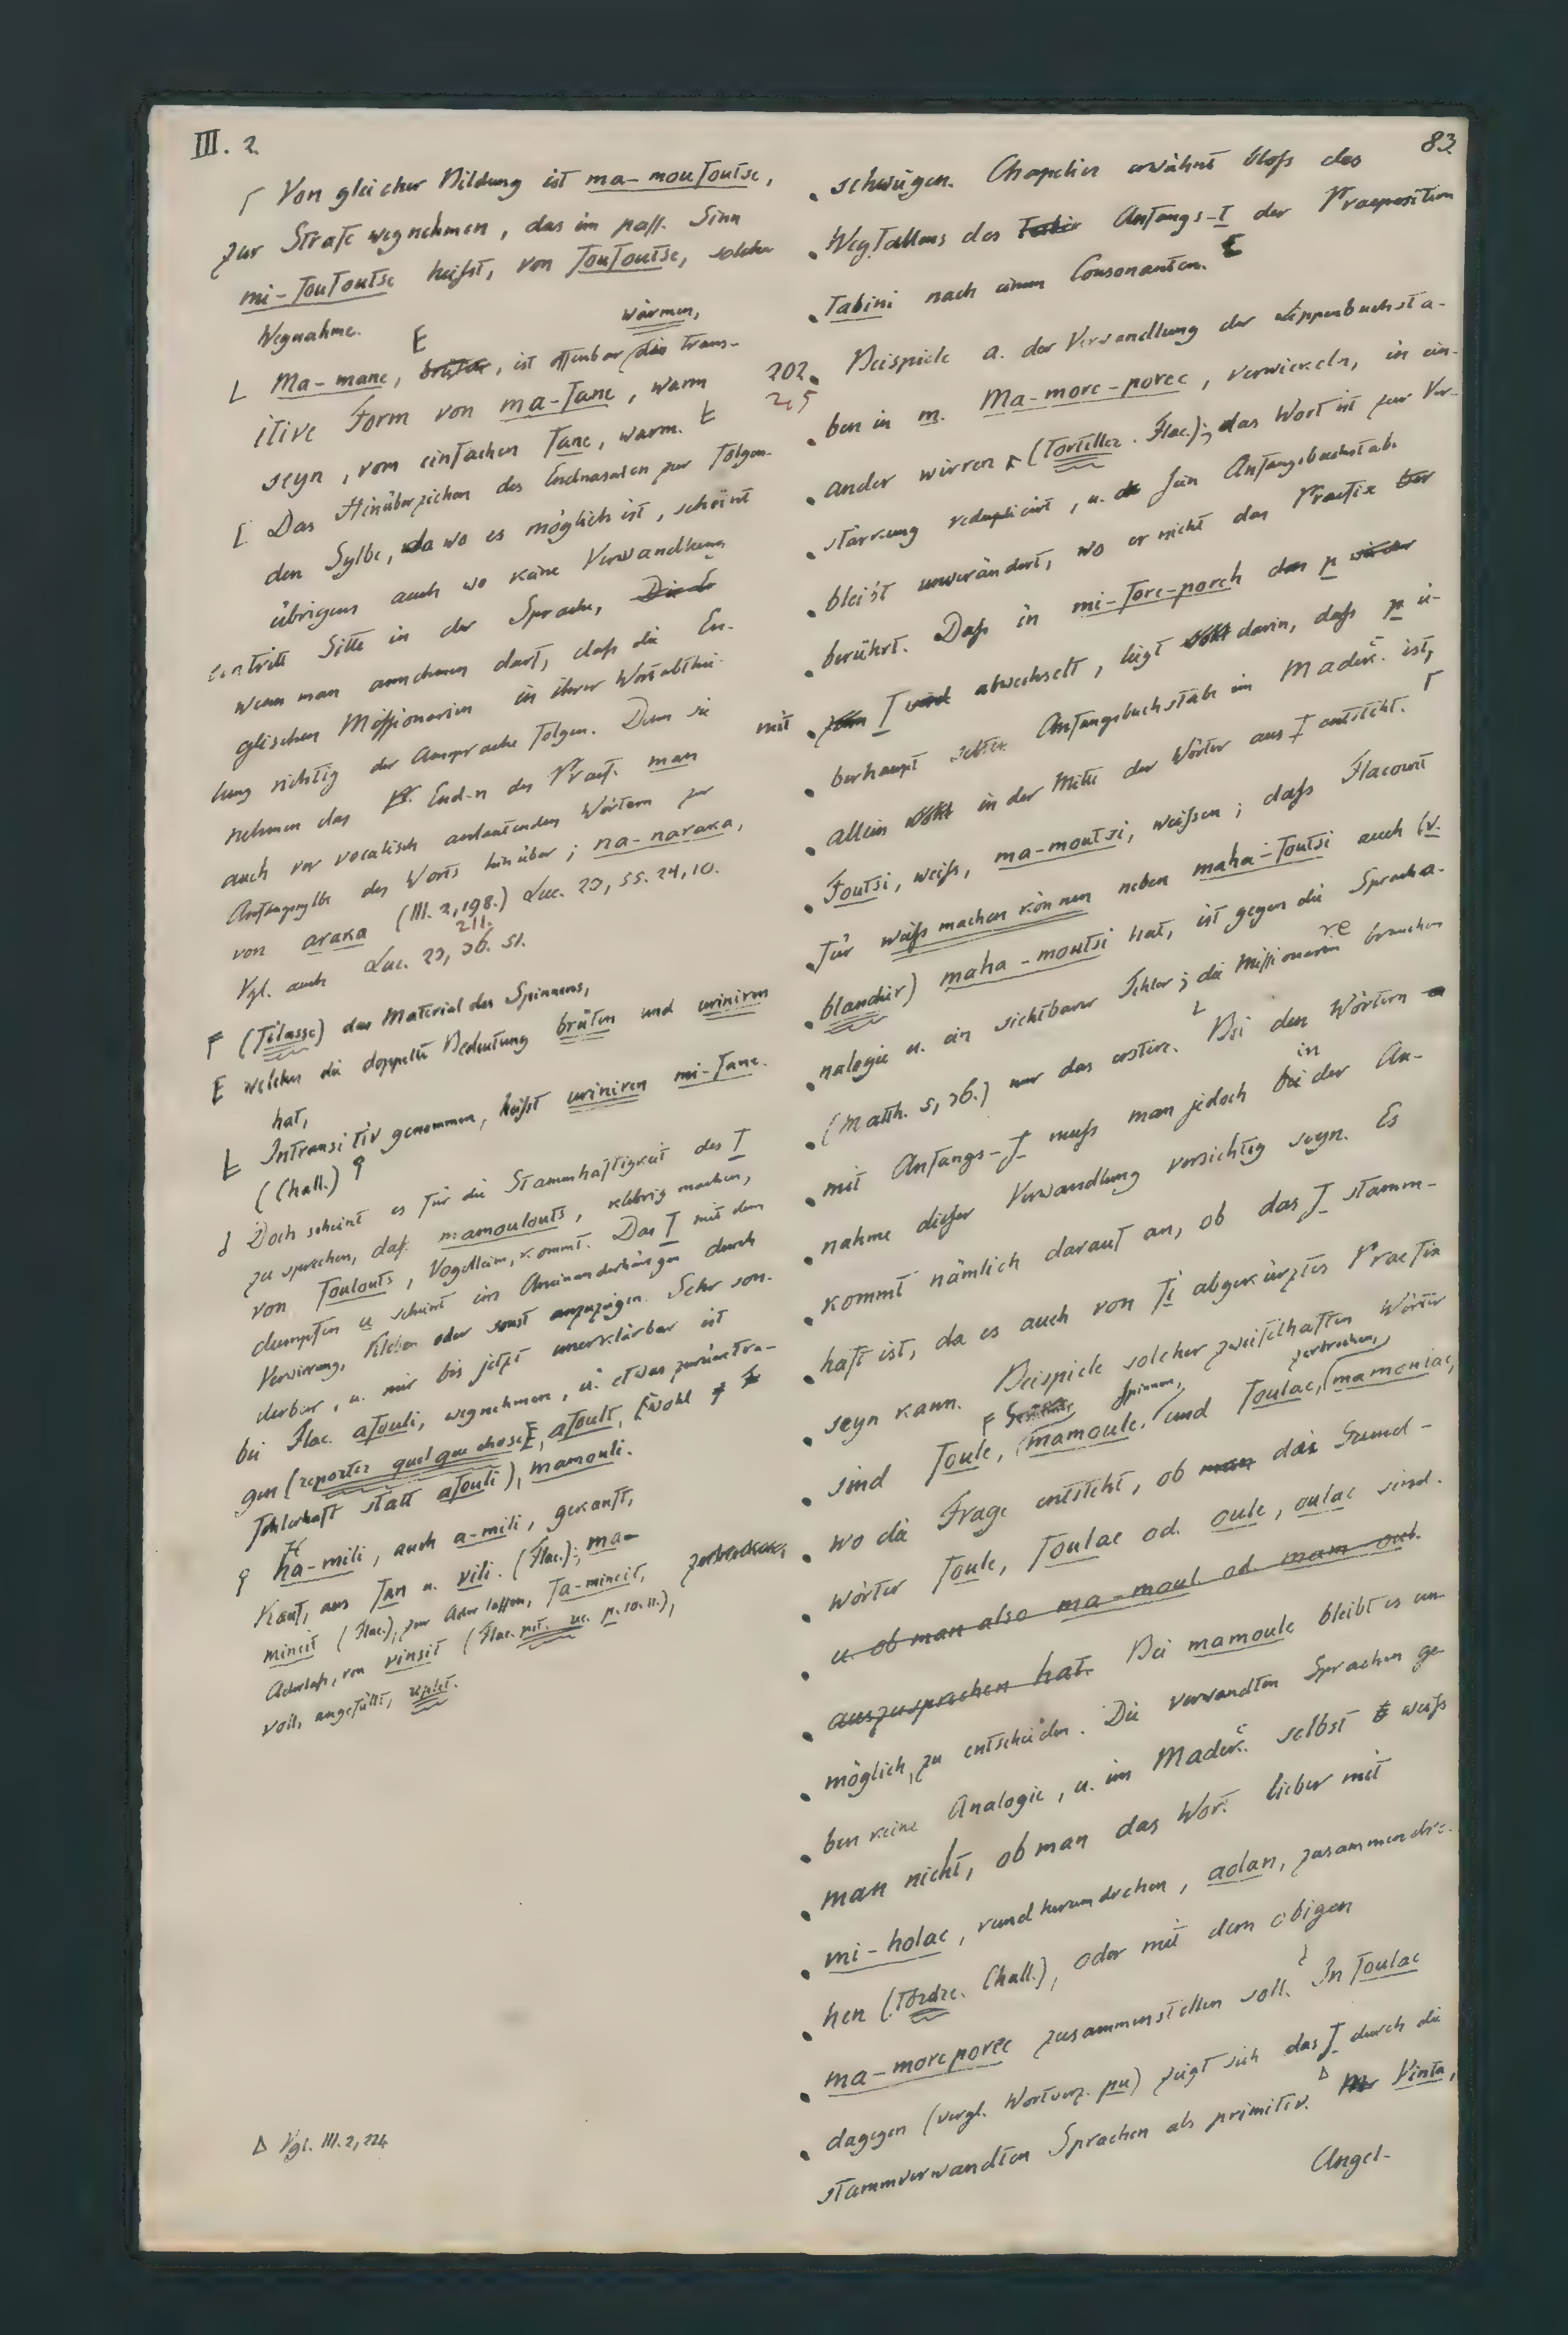 III. 2.
83.
┌ Von gleicher Bildung ist ma-moufoutse,
zur Strafe wegnehmen, das im pass. Sinn
mi-foufoutse heifst, von foufoutse, solcher
Wegnahme.
wärmen,
L Ma-mane, brüten, ist offenbar die trans-
itive Form von ma-fane, warm
seyn, vom einfachen fane, warm.
[ Das Hinüberziehen des Endnasalen zur folgen-
den Sylbe, da wo es möglich ist, scheint
übrigens auch wo keine Verwandlung
eintritt Sitte in der Sprache,
wenn man annehmen darf, dafs die En-
glischen Missionarien in ihrer Wortabthei-
lung richtig der Aussprache folgen. Denn sie
nehmen das End-n des Praef. man
auch vor vocalisch anlautenden Wörtern zur
Anfangssylbe des Worts hinüber; na-naraka,
von araka (III. 2, 198.) Luc. 23, 55. 24, 10.
211.
Vgl. auch Luc. 23, 26. 51.
F (filasse) das Material des Spinnens,
E welches die doppelte Bedeutung brüten und uriniren
hat,
Ł Intransitiv genommen, heifst uriniren mi-fane.
(Chall.)
Doch scheint es für die Stammhaftigkeit des f
zu sprechen, daf. mamoulouts, klebrig machen,
von foulouts, Vogelleim, kommt. Das f mit dem
dumpfen u scheint ein Aneinanderhängen durch
Verwirrung, Kleben oder sonst anzuzeigen. Sehr son-
derbar, u. mir bis jetzt unerklärbar ist
bei Flac. afouli, wegnehmen, u. etwas zurücktra-
gen (reporter quelque chose), afoult, [wohl
fehlerhaft statt afouli), mamouli.
ha-mili, auch a-mili, gekauft,
Kauf, aus fan u. vili. (Flac.); ma-
mincit (Flac.), zur Ader lassen, fa-mincit,
Aderlafs, von vinsit (Flac. p. 10. 11.),
voll, angefüllt, replet.
Δ Vgl. III. 2, 224
schwiegen. Chapelier erwähnt blofs des
Wegfallens des Anfangs-f der Praeposition
fabini nach einem Consonanten.
202. Beispiele a. der Verwandlung der Lippenbuchsta-
215
ben in m. Ma-more-porec, verwickeln, in ein-
ander wirren (tortiller. Flac.); das Wort ist zur Ver-
stärkung reduplicirt, u. sein Anfangsbuchstabe
bleibt unverändert, wo er nicht das Praefix
berührt. Dafs in mi-fore-porch p
mit f abwechselt, liegt darin, dafs p ü-
berhaupt selten Anfangsbuchstabe im Madec. ist,
allein in der Mitte der Wörter aus f entsteht.
Foutsi, weifs, ma-moutsi, weifsen; dafs Flacourt
für weifs machen können neben maha-foutsi auch (v.
blanchir) maha-moutsi hat, ist gegen die Spracha-
nalogie u. ein sichtbarer Fehler; die Missionare brauchen
(Matth. 5, 36.) nur das erstere. Bei den Wörtern
mit Anfangs-f mufs man jedoch in der An-
nahme dieser Verwandlung vorsichtig seyn. Es
kommt nämlich darauf an, ob das f stamm-
haft ist, da es auch von fi abgekürztes Praefix
seyn kann. Beispiele solcher zweifelhaften Wörter
spinnen, zerbrechen,
sind foule, mamoule, und foulac, mamoniac,
wo die Frage entsteht, ob die Grund-
wörter foule, foulac od. oule, oulac sind.
u. ob man also ma-moul. od. mam-oul.
auszusprechen hat. Bei mamoule bleibt es un-
möglich, zu entscheiden. Die verwandten Sprachen ge-
ben keine Analogie, u. im Madec. selbst weifs
man nicht, ob man das Wort lieber mit
mi-holac, rund herum drehen, aolan, zusammendre-
hen (tordre. Chall.), oder mit dem obigen
ma-moreporec zusammenstellen soll. In foulac
dagegen (vergl. Wortverz. pu) zeigt sich das f durch die
stammverwandten Sprachen als primitiv. Δ Vinta,
Angel-